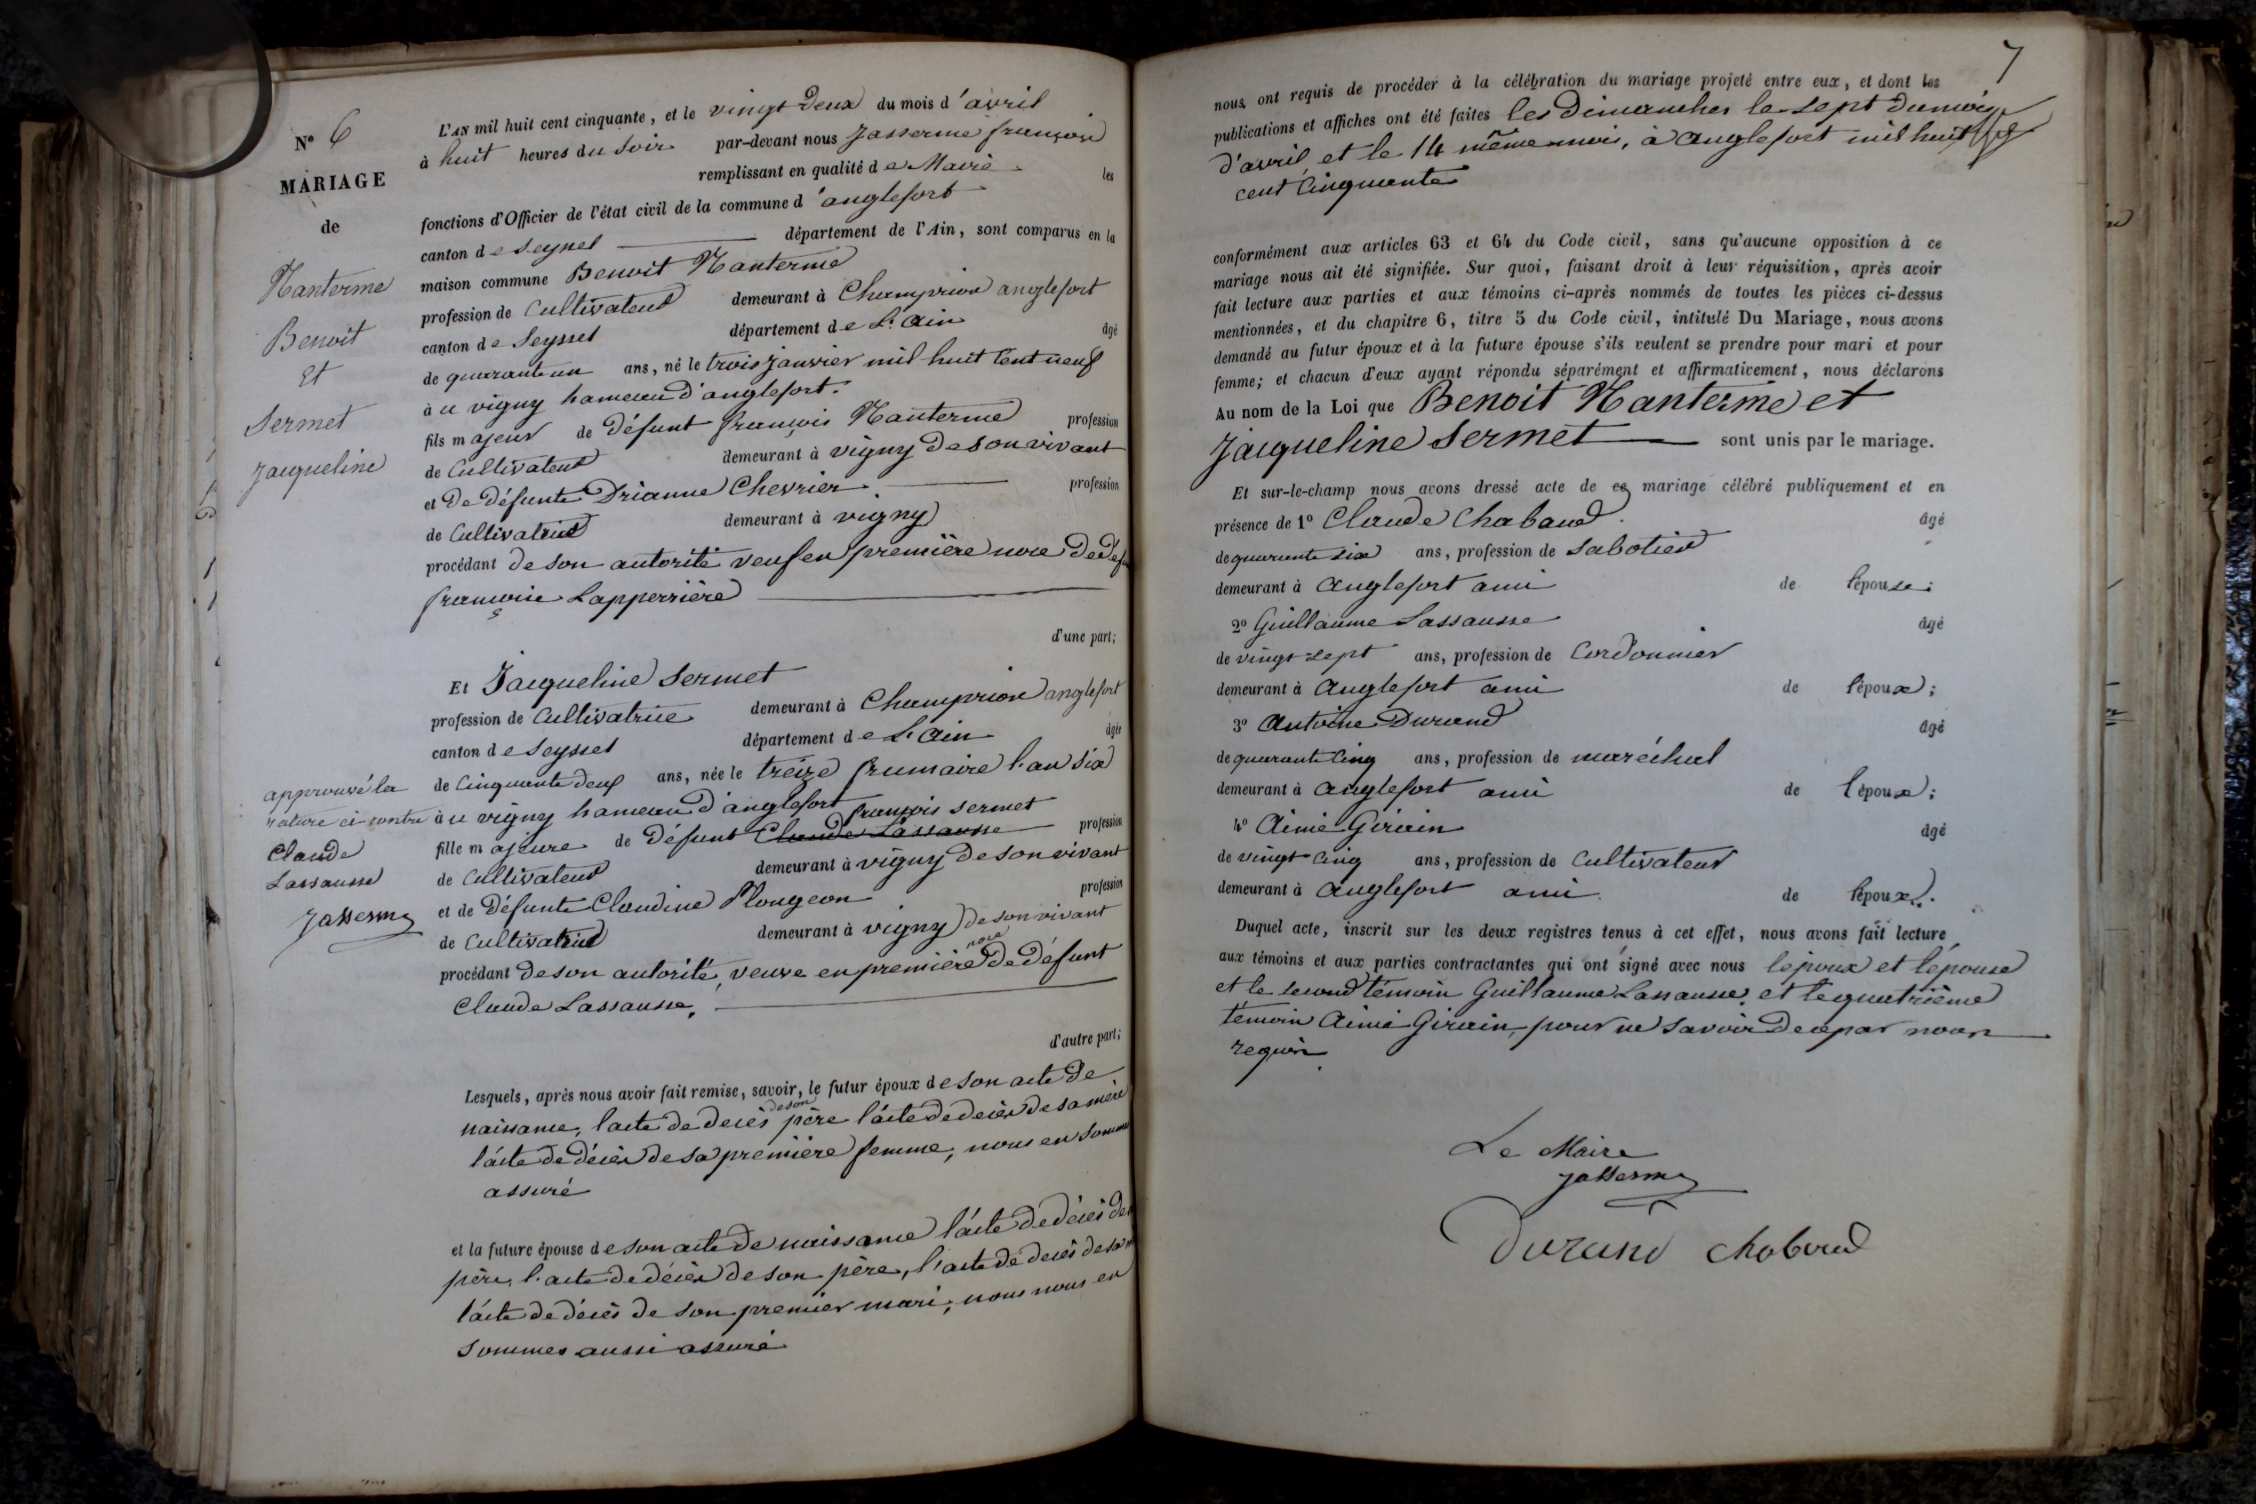 N° 6
MARIAGE
de
Nanterme
Benoit
Et
Sermet
Jacqueline
L'AN mil huit cent cinquante, et le vingt deux du mois d'avril
à huit heures du soir par-devant nous Jasserme françois
remplissant en qualité de Maire les
fonctions d'Officier de l'état civil de la commune d'anglefort
canton de Seyssel département de l'Ain, sont comparus en la
maison commune Benoit Nanterme
profession de Cultivateur demeurant à Champrion anglefort
canton de Seyssel département de L'Ain âgé
de quarante un ans, né le trois janvier mil huit cent neuf
à u vigny hameau d'anglefort.
fils majeur de défunt françois Nanterme profession
de Cultivateur demeurant à vigny de son vivant
et de défunte Drianne Chevrier profession
de Cultivatrice demeurant à vigny
procédant de son autorité veuf en première noce de
françoise Lapperrière
d'une part;
Et Jacqueline Sermet
profession de Cultivatrice demeurant à Champrion anglefort
canton de Seyssel département de L'Ain âgée
de Cinquante deux ans, née le treize frumaire l'an six
à u vigny hameau d'anglefort
françois Sermet
fille majeure de défunt Claude Lassausse profession
de Cultivateur demeurant à vigny de son vivant
et de défunte Claudine Plongeon profession
de Cultivatrice demeurant à vigny de son vivant
procédant de son autorité, veuve en première noce de défunt
Claude Lassausse,
d'autre part;
approuvé la
rature ci contre
Claude
Lassausse
Jasserme
Lesquels, après nous avoir fait remise, savoir, le futur époux de son acte de
naissance, l'acte de décès de son père l'acte de décès de sa mère
l'acte de décès de sa première femme, nous en sommes
assuré
et la future épouse de son acte de naissance l'acte de décès de
père, l'acte de décès de son père, l'acte de décès de sa
l'acte de décès de son premier mari, nous nous en
sommes aussi assuré
7
nous ont requis de procéder à la célébration du mariage projeté entre eux, et dont les
publications et affiches ont été faites les dimanches le sept du mois
d'avril et le 14 même mois, à anglefort mil huit
cent Cinquante
conformément aux articles 63 et 64 du Code civil, sans qu'aucune opposition à ce
mariage nous ait été signifiée. Sur quoi, faisant droit à leur réquisition, après avoir
fait lecture aux parties et aux témoins ci-après nommés de toutes les pièces ci-dessus
mentionnées, et du chapitre 6, titre 5 du Code civil, intitulé Du Mariage, nous avons
demandé au futur époux et à la future épouse s'ils veulent se prendre pour mari et pour
femme; et chacun d'eux ayant répondu séparément et affirmativement, nous déclarons
Au nom de la Loi que Benoit Nanterme et
Jacqueline Sermet sont unis par le mariage.
Et sur-le-champ nous avons dressé acte de ce mariage célébré publiquement et en
présence de 1° Claude Chabaud âgé
de quarante six ans, profession de Sabotier
demeurant à anglefort ami de l'épouse;
2° Guillaume Lassausse âgé
de vingt sept ans, profession de Cordonnier
demeurant à anglefort ami de l'époux;
3° Antoine Durand âgé
de quarante Cinq ans, profession de maréchal
demeurant à anglefort ami de l'époux;
4° Aimé Girain âgé
de vingt Cinq ans, profession de Cultivateur
demeurant à anglefort ami de l'époux.
Duquel acte, inscrit sur les deux registres tenus à cet effet, nous avons fait lecture
aux témoins et aux parties contractantes qui ont signé avec nous l'époux et l'épouse
et le second témoin Guillaume Lassausse, et le quatrième
témoin Aimé Girain, pour ne savoir de par nous
requis.
Le Maire
Jasserme
Durand Chabaud